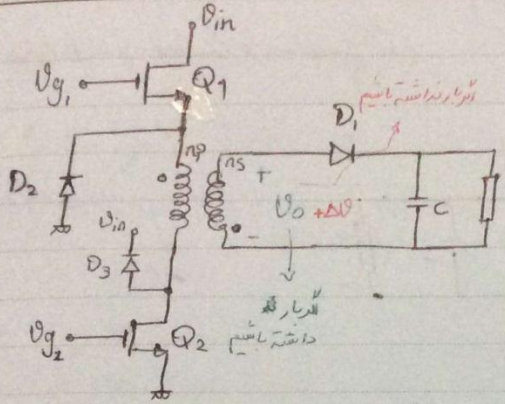 Vin
Vg1
Q1
اگر بار نداشته باشیم
D1
D2
np
ns
+
Vo +ΔV
C
Vin
D3
-
اگر بار
داشته باشیم
Vg2
Q2